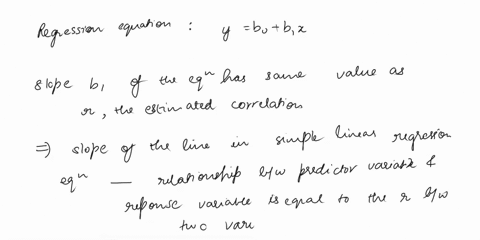 Regression equation : y = b₀ + b₁x
slope b₁ of the eqⁿ has same value as
r, the estimated correlation
⇒ slope of the line in simple linear regresion
eqⁿ — relationship b/w predictor variable &
reponse variable is equal to the r b/w
two vari